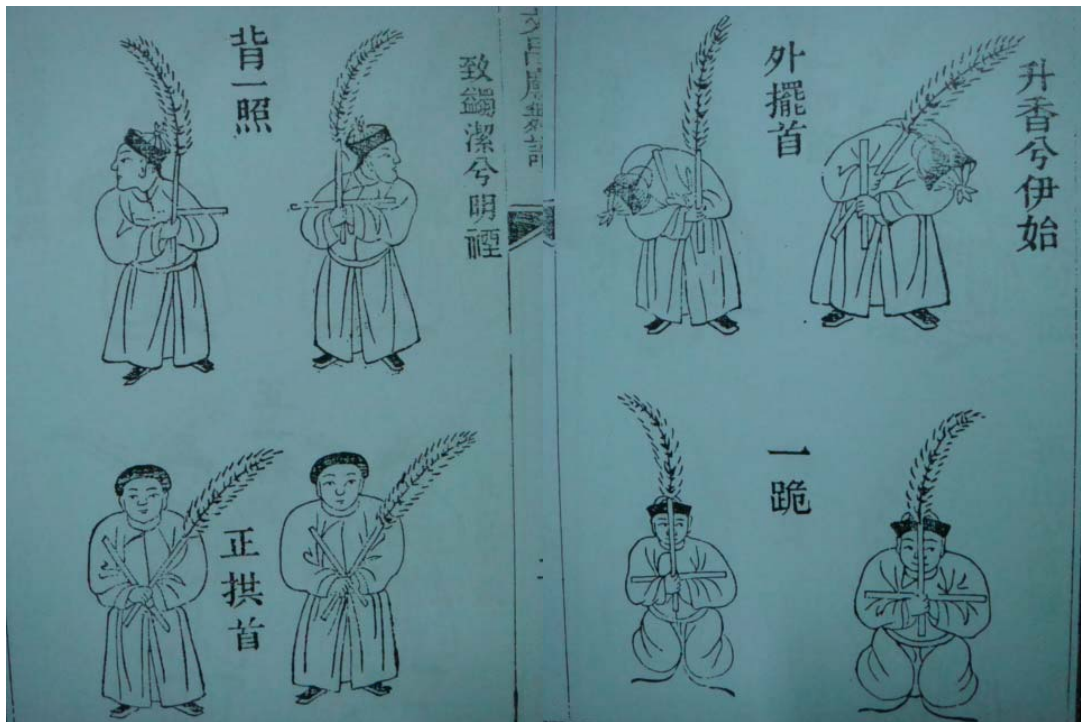 升香兮伊始
外擺首
一跪
致蠲潔兮明禋
背一照
正拱首